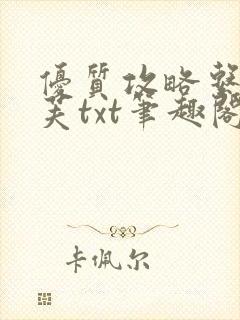 優質攻略整
芙txt筆趣閣
卡佩尔